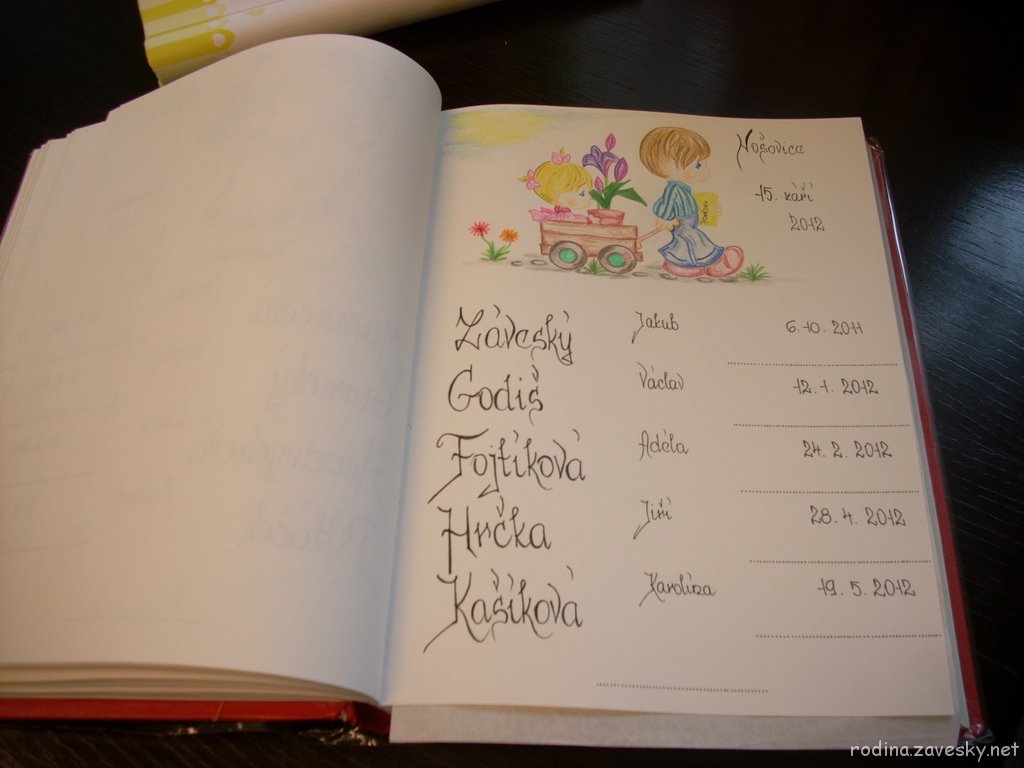 Nošovice
15. září
2012
Záveský Jakub 6. 10. 2011
Godiš Václav 12. 1. 2012
Fojtíková Adéla 24. 2. 2012
Hrčka Jiří 28. 4. 2012
Kašíková Karolína 19. 5. 2012
rodina.zavesky.net